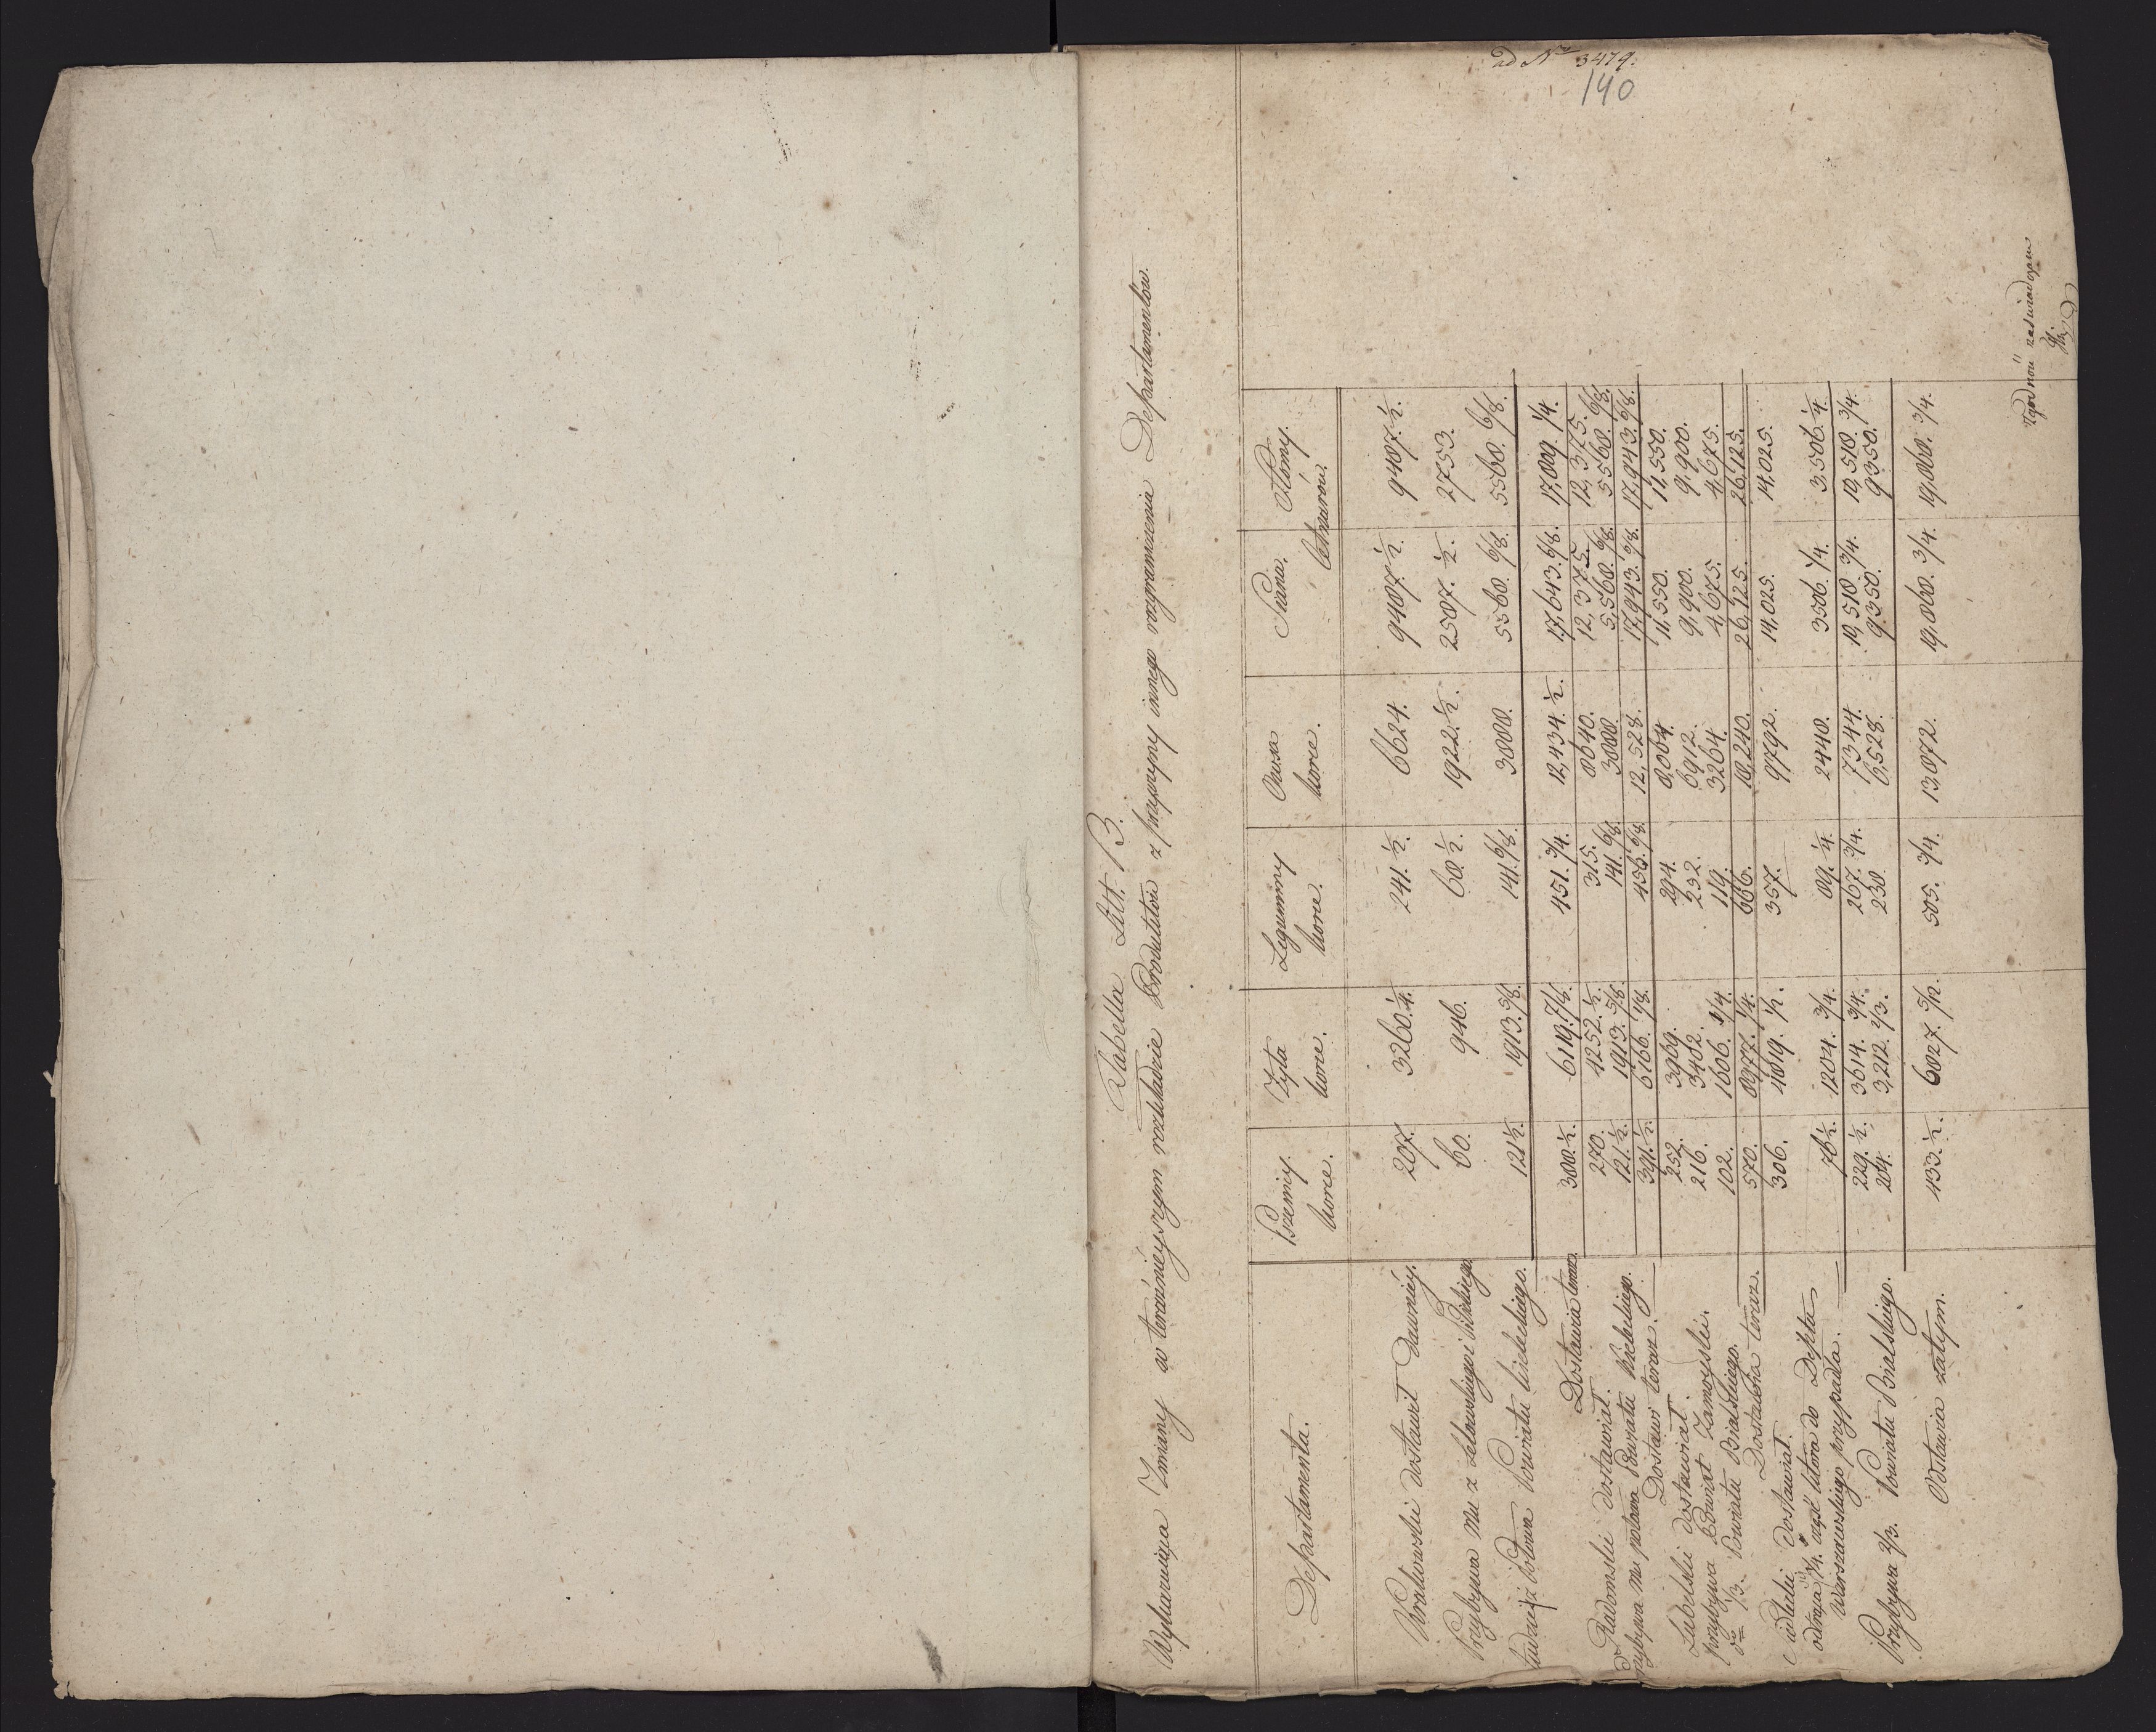 ad Nro 3479.
140
Tabella Litt. B.
Wykazuiąca Zmiany w teraźnieyszym rozkładzie Produktów z przyczyny innego rozgraniczenia Departamentów.
Departamenta. | Pszenicy. korce. | Żyta korce. | Legumminy korce. | Owsa korce. | Siana. | Słomy. Cetnarów.
Krakowski dostawił dawniéy. | 207. | 3260.¼. | 241.½. | 6624. | 9487.½. | 9487.½.
Przybywa mu z Lelowskiego i Pilickiego | 60. | 946. | 68.½. | 1922.½. | 2587.½. | 2753.
tudzież połowa Powiatu kieleckiego. | 121½. | 1913.5/8. | 141.6/8. | 3888. | 5568.6/8. | 5568.6/8.
Dostawia teraz. | 388.½. | 6119.7/8. | 451.¾. | 12,434.½. | 17,643.6/8. | 17,809.¼.
Radomski dostawiał. | 270. | 4252.½. | 315. | 8640. | 12,375. | 12,375.
przybywa mu połowa Powiatu Kieleckiego. | 121.½. | 1913.5/8. | 141.6/8. | 3888. | 5,568.6/8. | 5,568.6/8.
Dostawi teraz. | 391.½. | 6166.1/8. | 456.6/8. | 12,528. | 17,943.6/8. | 17,943.6/8.
Lubelski dostawiał. | 252. | 3969. | 294. | 8,064. | 11,550. | 11,550.
przybywa Powiat Zamoyski. | 216. | 3402. | 252. | 6912. | 9,900. | 9,900.
do 1/3. Powiatu Bialskiego. | 102. | 1606.¼. | 119. | 3264. | 4,675. | 4,675.
Dostawia teraz. | 570. | 8977.¼. | 666. | 18,240. | 26,125. | 26,125.
Siedlecki dostawiał. | 306. | 4819.½. | 357. | 9792. | 14,025. | 14,025.
odtrąca ¼. część która do Deptu
Warszawskiego przypadła. | 76½. | 1204.¾. | 89.¼. | 2448. | 3506.¼. | 3,506.¼.
229.½. | 3614.¾. | 267.¾. | 7344. | 10,518.¾. | 10,518.¾.
Przybywa 2/3. Powiatu Bialskiego. | 204. | 3,212.2/3. | 238 | 6,528. | 9,350. | 9,350.
Dostawia zatym. | 433.½. | 6827.5/12. | 505.¾. | 13,872. | 19,868.¾. | 19,868.¾.